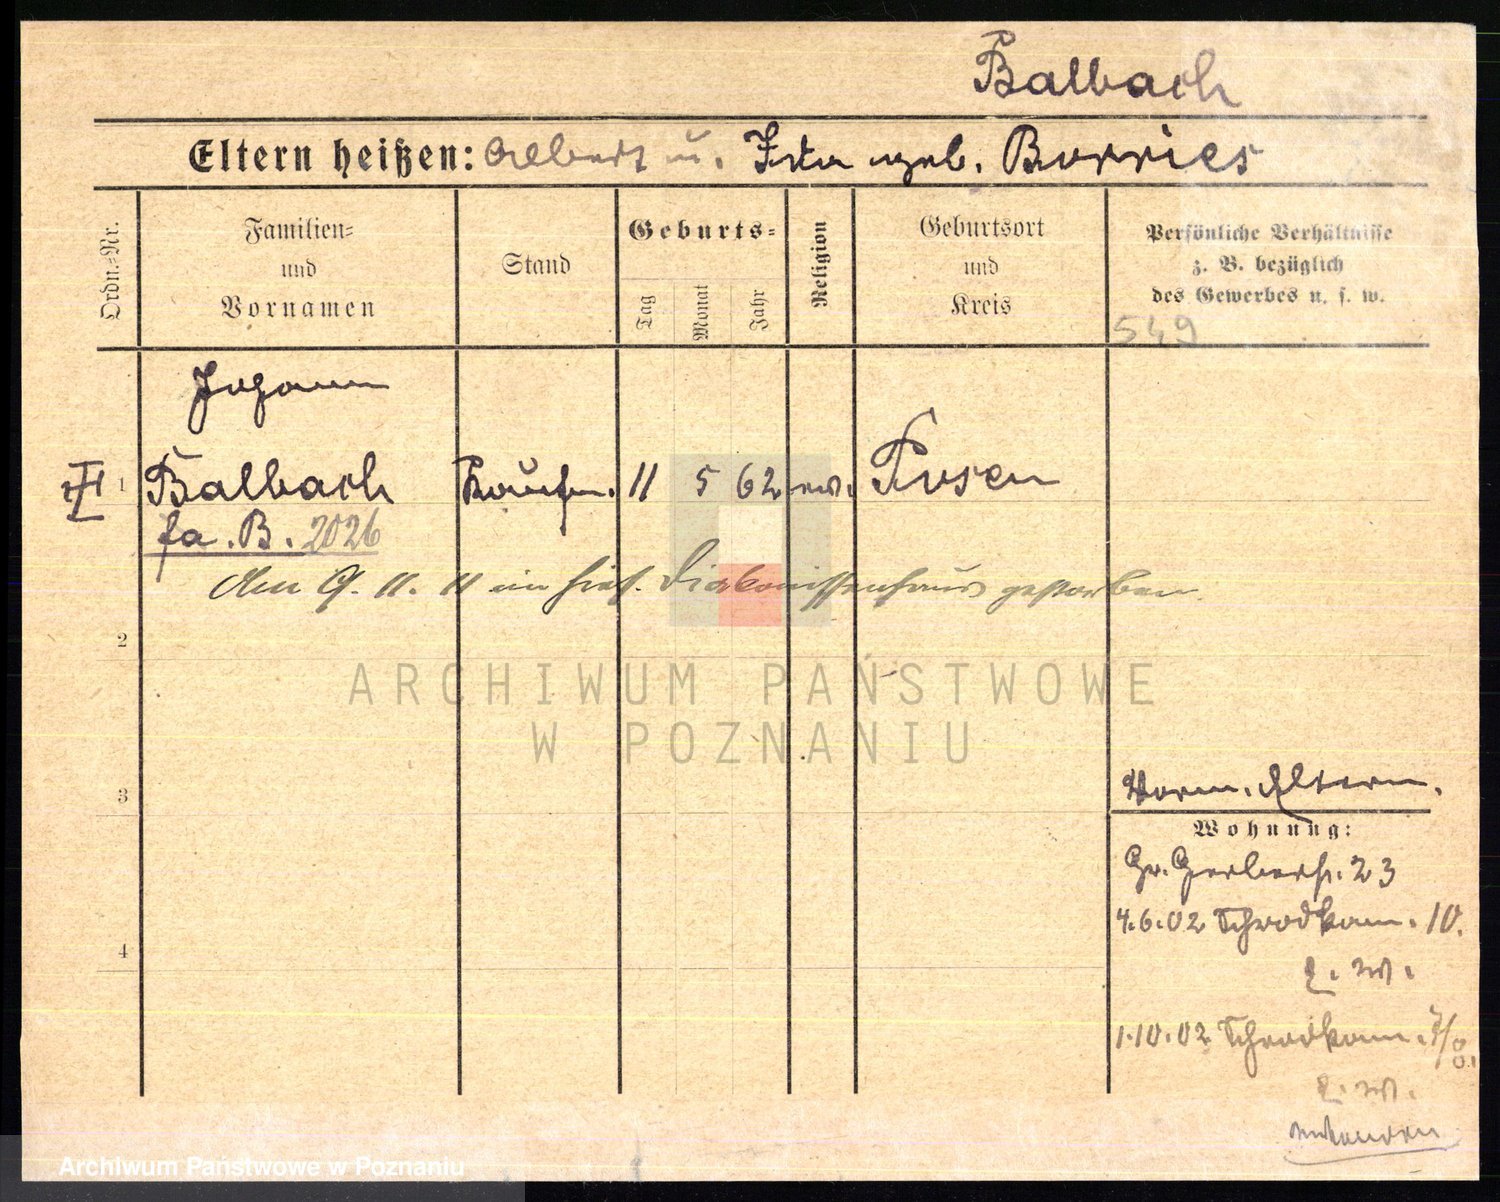 Balbach
Eltern heißen: Albert u. Ida geb. Borries
Ordn.-Nr.
Familien- und Vornamen
Stand
Geburts-
Tag
Monat
Jahr
Religion
Geburtsort und Kreis
Persönliche Verhältnisse
z. B. bezüglich
des Gewerbes u. s. w.
549
Johann
1 Balbach Kaufm. 11 5 62 ev. Posen
fa. B. 2026
den 9. 11. 11 im hies. Diakonissenhaus gestorben.
2
ARCHIWUM PAŃSTWOWE
W POZNANIU
3
Eltern.
Wohnung:
Gr. Gerberstr. 23
4.6.02 Schrodkam. 10.
1.10.02 Schrodkam.
4
Archiwum Państwowe w Poznaniu